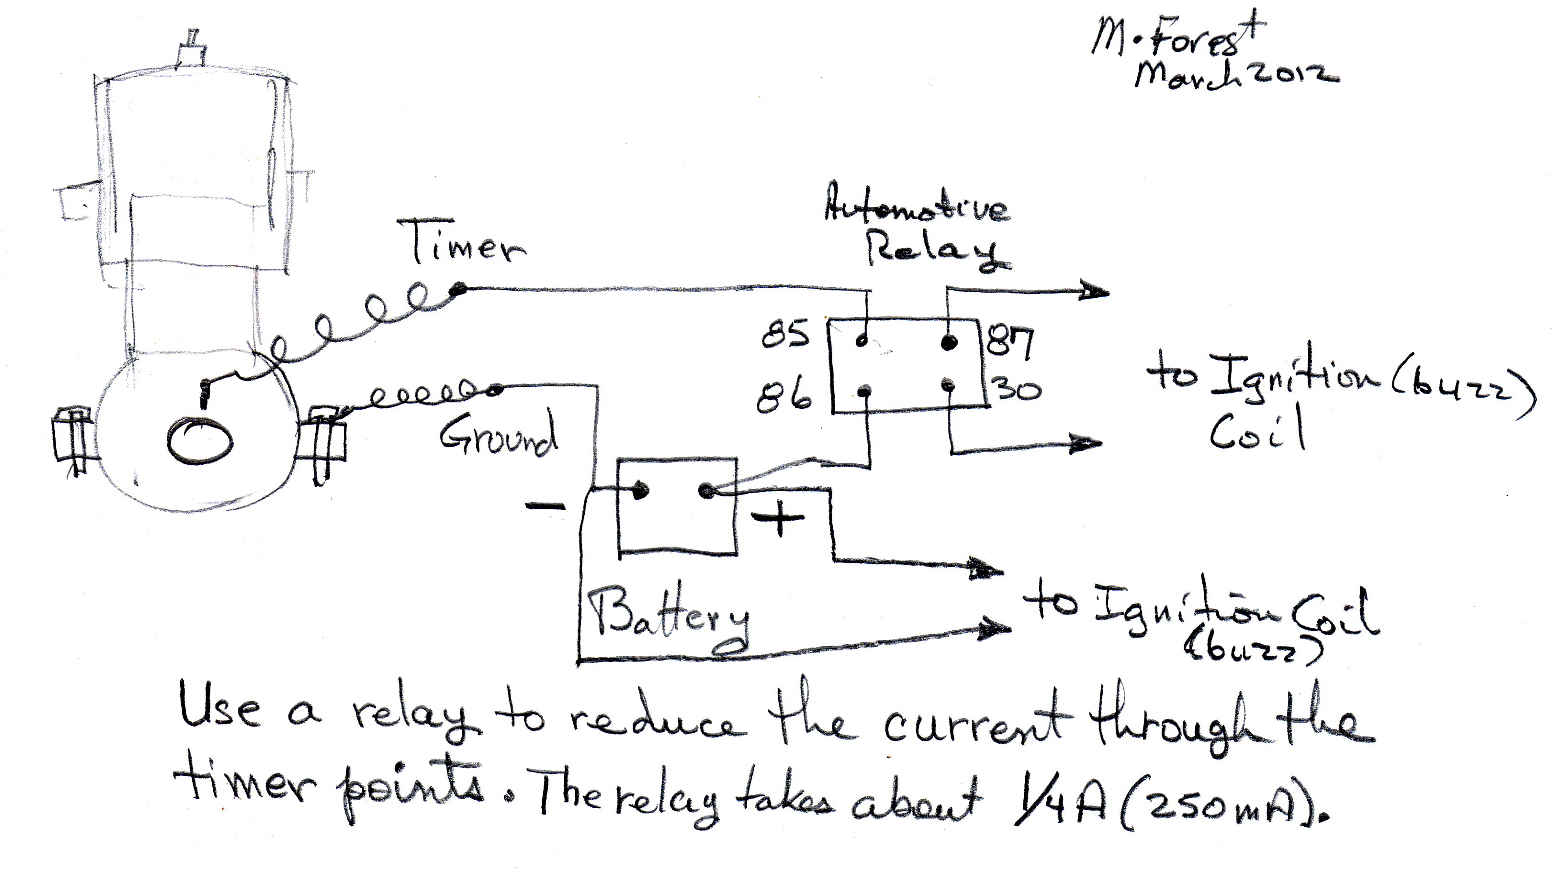 M. Forest
March 2012
Automotive
Relay
Timer
85
87
86
30
to Ignition (buzz)
Coil
Ground
-
+
Battery
to Ignition Coil
(buzz)
Use a relay to reduce the current through the
timer points. The relay takes about 1/4 A (250mA).